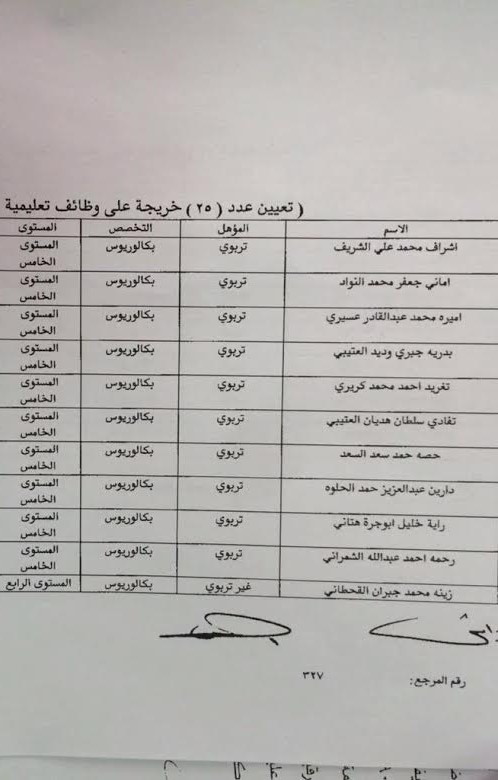 ( تعيين عدد ( ٢٥ ) خريجة على وظائف تعليمية
الاسم المؤهل التخصص المستوى
اشراف محمد علي الشريف تربوي بكالوريوس المستوى الخامس
اماني جعفر محمد النواد تربوي بكالوريوس المستوى الخامس
اميره محمد عبدالقادر عسيري تربوي بكالوريوس المستوى الخامس
بدريه جبري وديد العتيبي تربوي بكالوريوس المستوى الخامس
تغريد احمد محمد كريري تربوي بكالوريوس المستوى الخامس
تفادي سلطان هديان العتيبي تربوي بكالوريوس المستوى الخامس
حصه حمد سعد السعد تربوي بكالوريوس المستوى الخامس
دارين عبدالعزيز حمد الحلوه تربوي بكالوريوس المستوى الخامس
راية خليل ابوجرة هتاني تربوي بكالوريوس المستوى الخامس
رحمه احمد عبدالله الشمراني تربوي بكالوريوس المستوى الخامس
زينه محمد جبران القحطاني غير تربوي بكالوريوس المستوى الرابع
رقم المرجع: ٣٢٧